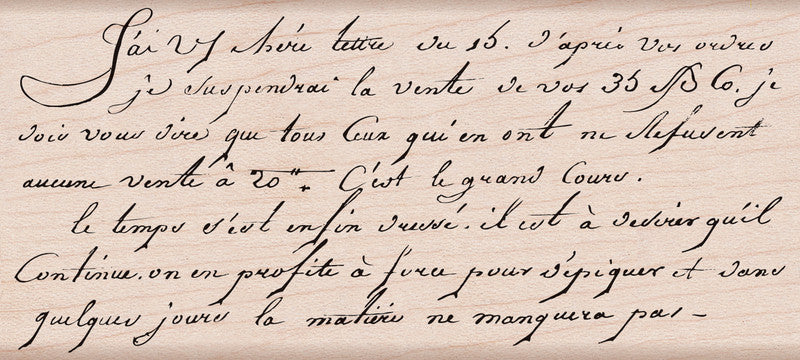 J'ai V/ chéré lettre du 15. d'après vos ordres
je suspendrai la vente de vos 35 Co. je
dois vous dire que tous Ceux qui en ont ne Refusent
aucune vente à 20". C'est le grand Cours.
le temps s'est enfin dressé. il est à desirer qu'il
Continue. on en profite à force pour dépiquer et dans
quelques jours la matière ne manquera pas -